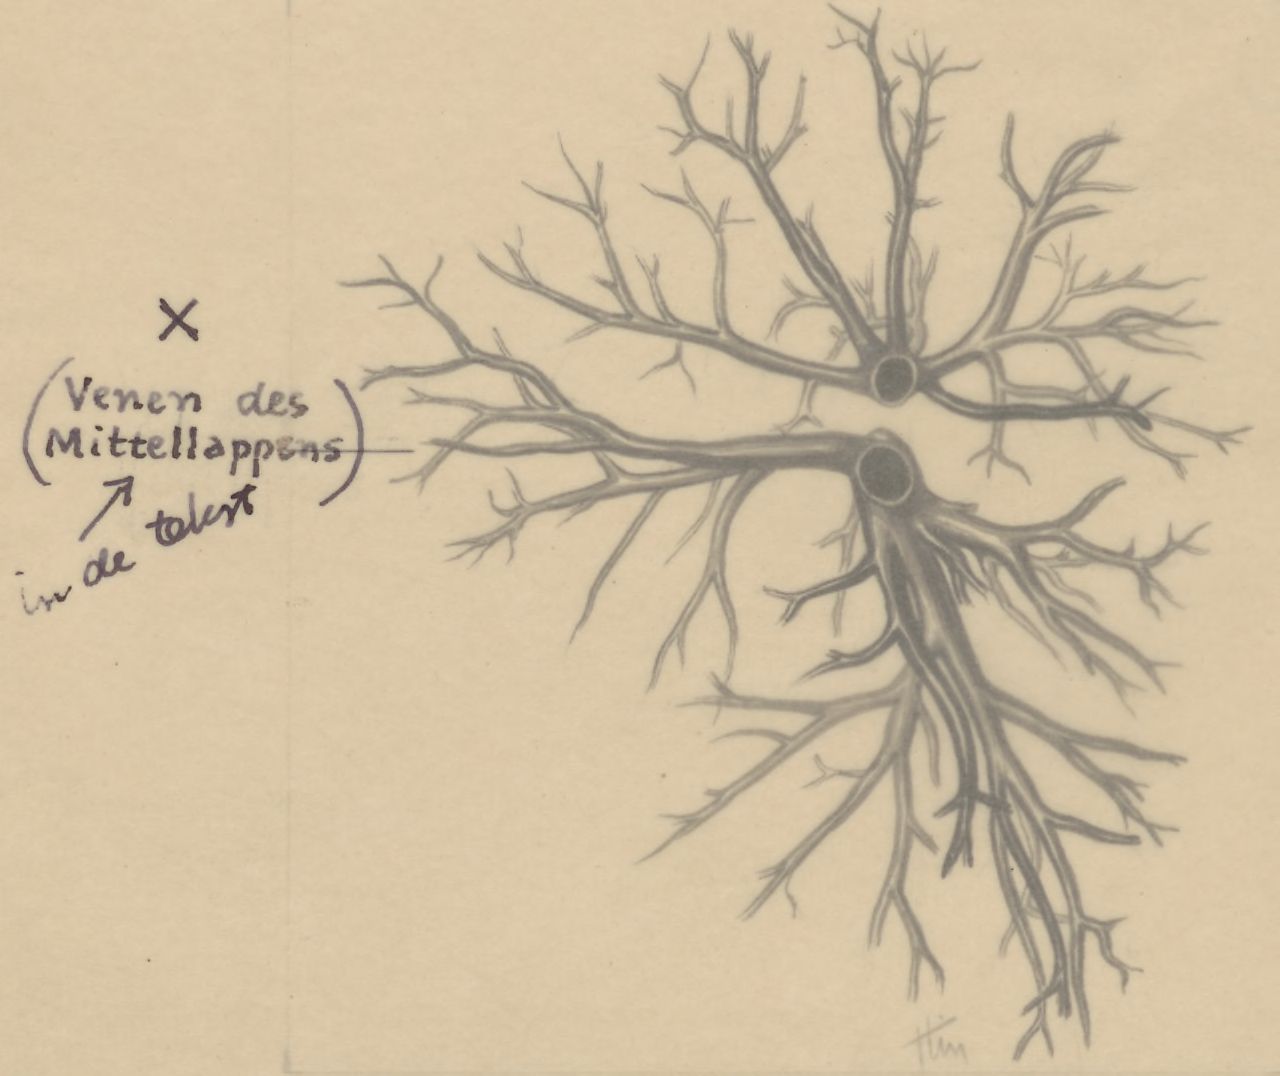 X
(Venen des
Mittellappens)
in de tekst